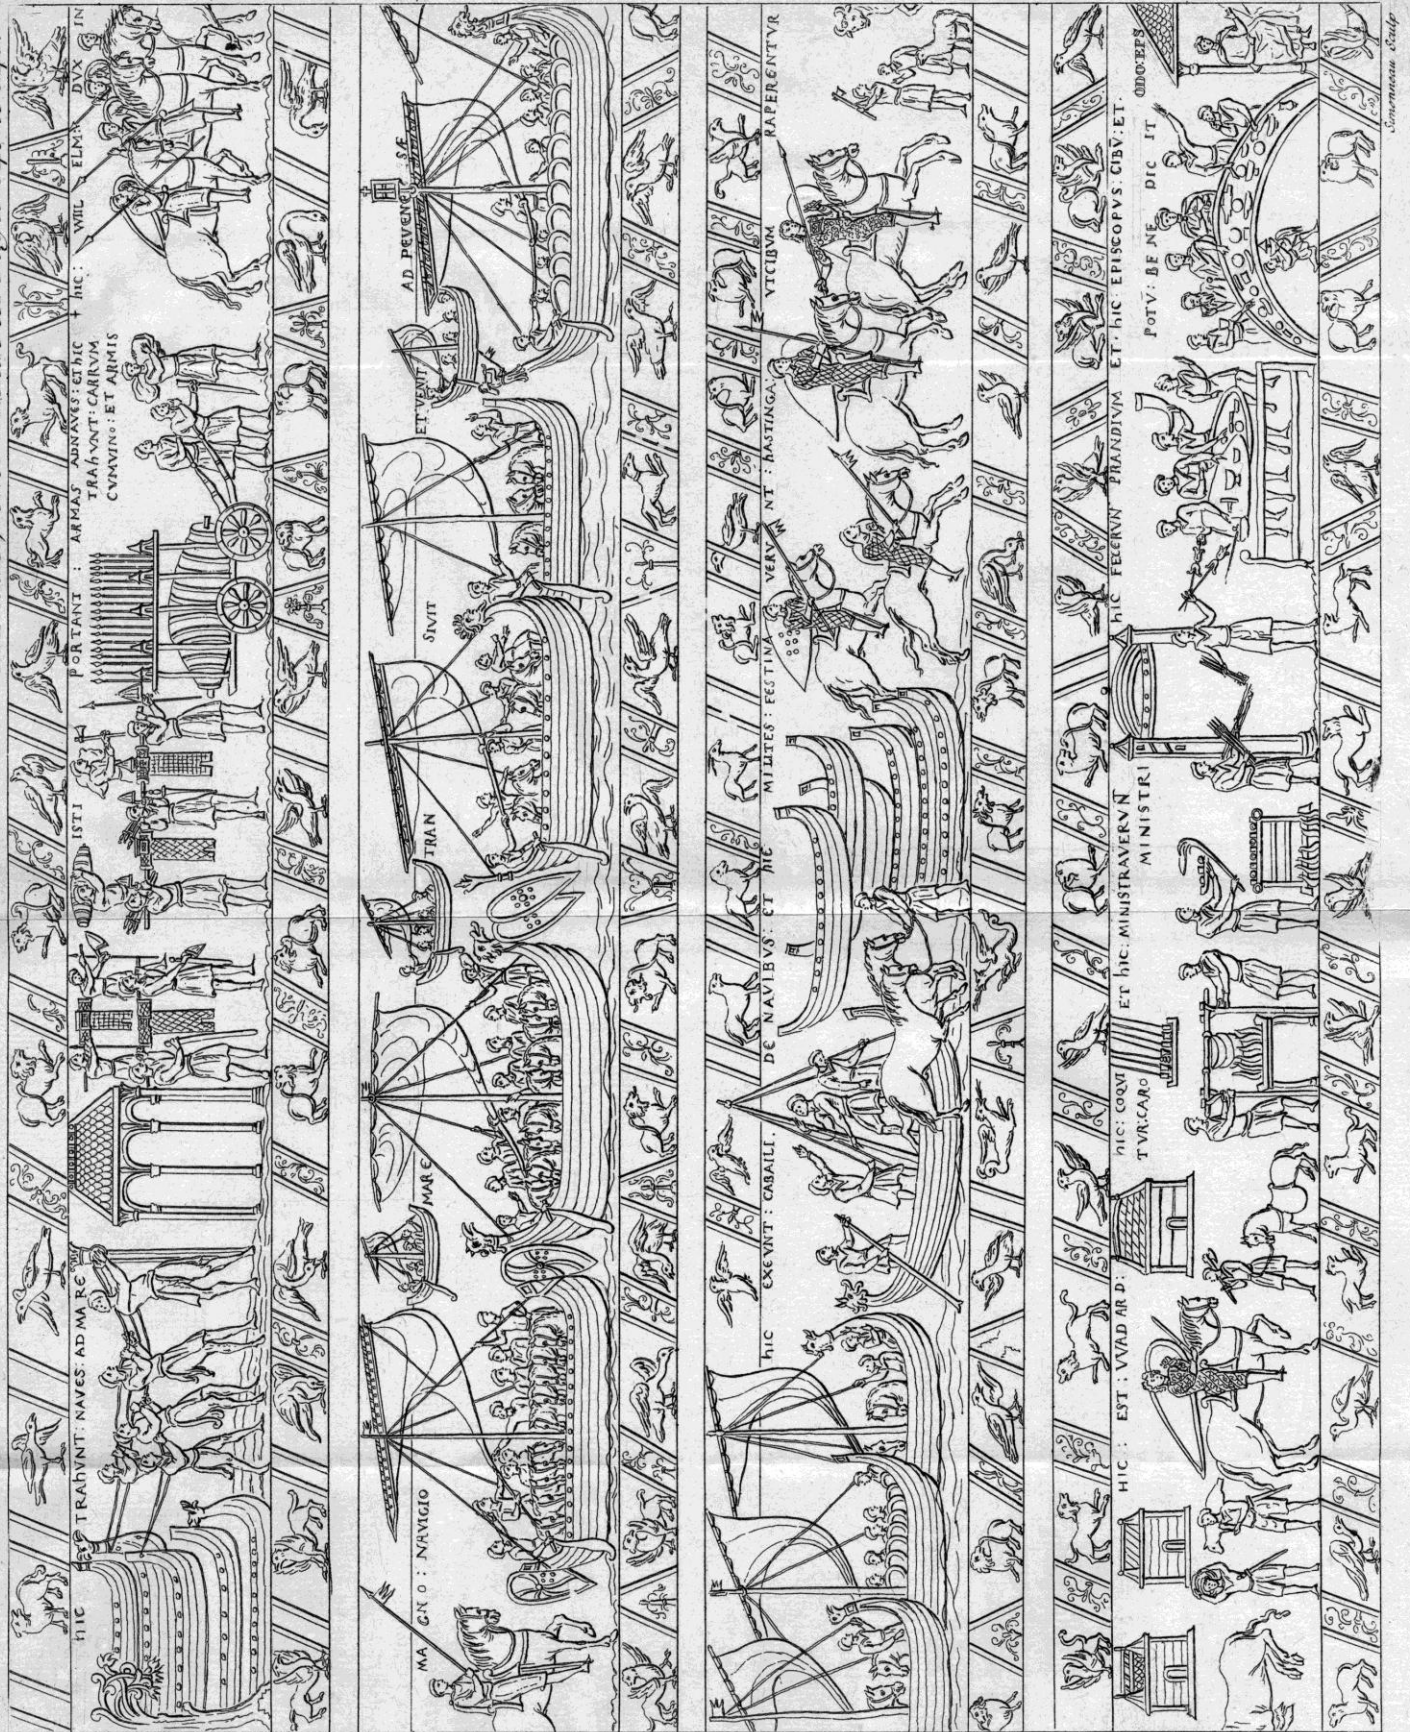 HIC TRAHVNT: NAVES: AD MARE
ISTI PORTANT : ARMAS ADNAVES: ET hIC
TRAhVNT: CARRVM
CVMVINO: ET ARMIS
+ hIC: WILLELM: DVX IN
MAGNO: NAVIGIO MARE TRAN SIVIT ET VENIT AD PEVENESÆ
hIC EXEVNT: CABALLI. DE NAVIBVS: ET hIC MILITES: FESTINAVERVNT: hASTINGA: VTCIBVM RAPERENTVR
HIC: EST: VVADARD:
hIC: COQVI
TVR: CARO
ET hIC: MINISTRAVERVÑ
MINISTRI
hIC FECERVN PRANDIVM ET·hIC: EPISCOPVS: CIBV̄: ET·
POTV̄: BENE DIC IT
ODO: EPS
Simonneau Sculp